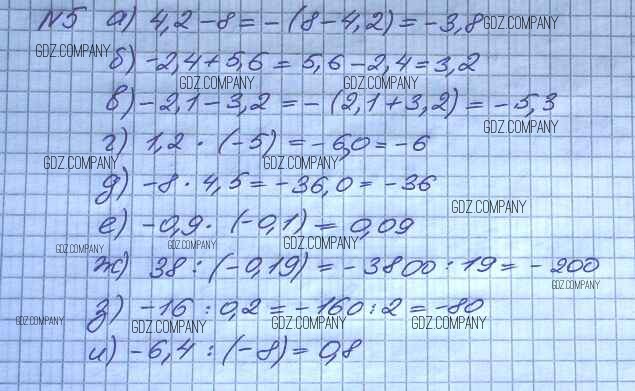 №5 а) 4,2 - 8 = - (8 - 4,2) = - 3,8 GDZ.COMPANY
GDZ.COMPANY б) - 2,4 + 5,6 = 5,6 - 2,4 = 3,2
GDZ.COMPANY GDZ.COMPANY
в) - 2,1 - 3,2 = - (2,1 + 3,2) = - 5,3
GDZ.COMPANY
г) 1,2 · (-5) = - 6,0 = - 6
GDZ.COMPANY GDZ.COMPANY
д) - 8 · 4,5 = - 36,0 = - 36
GDZ.COMPANY
е) - 0,9 · (-0,1) = 0,09
GDZ.COMPANY GDZ.COMPANY GDZ.COMPANY
ж) 38 : (-0,19) = - 3800 : 19 = - 200
GDZ.COMPANY
з) - 16 : 0,2 = - 160 : 2 = - 80
GDZ.COMPANY GDZ.COMPANY GDZ.COMPANY GDZ.COMPANY
и) - 6,4 : (-8) = 0,8